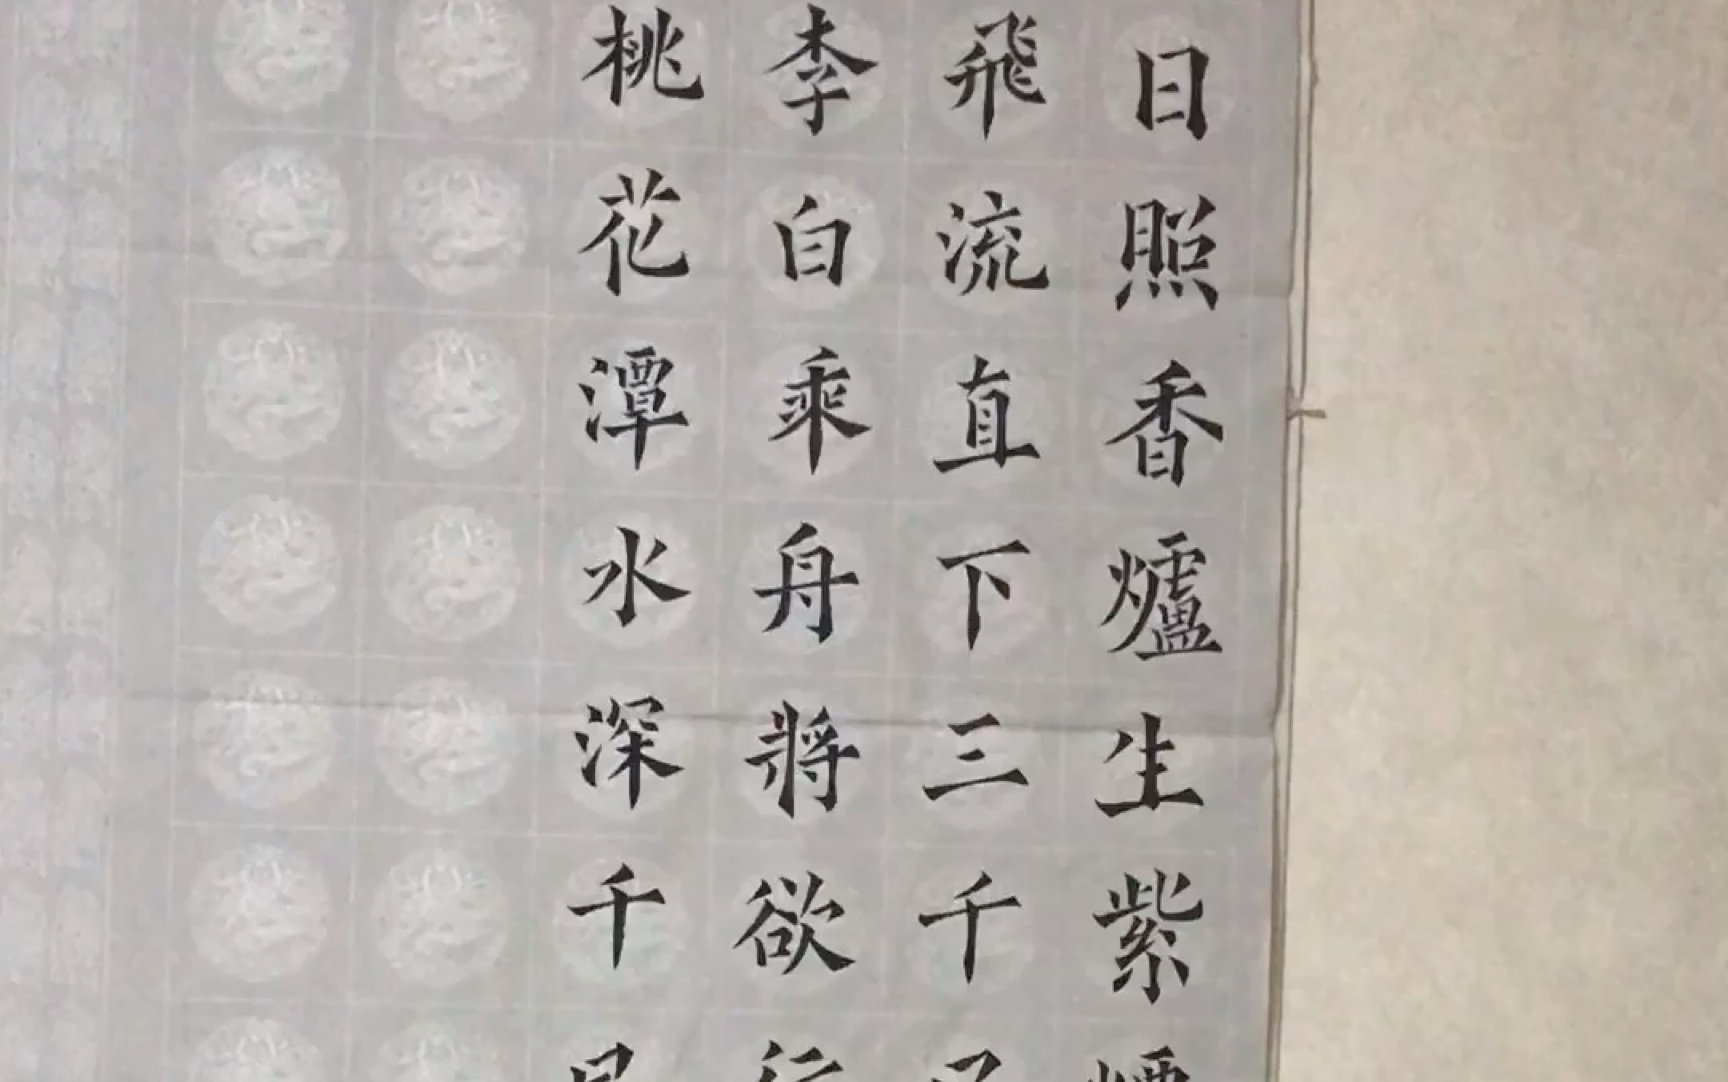 日照香爐生紫煙
飛流直下三千尺
李白乘舟將欲行
桃花潭水深千尺